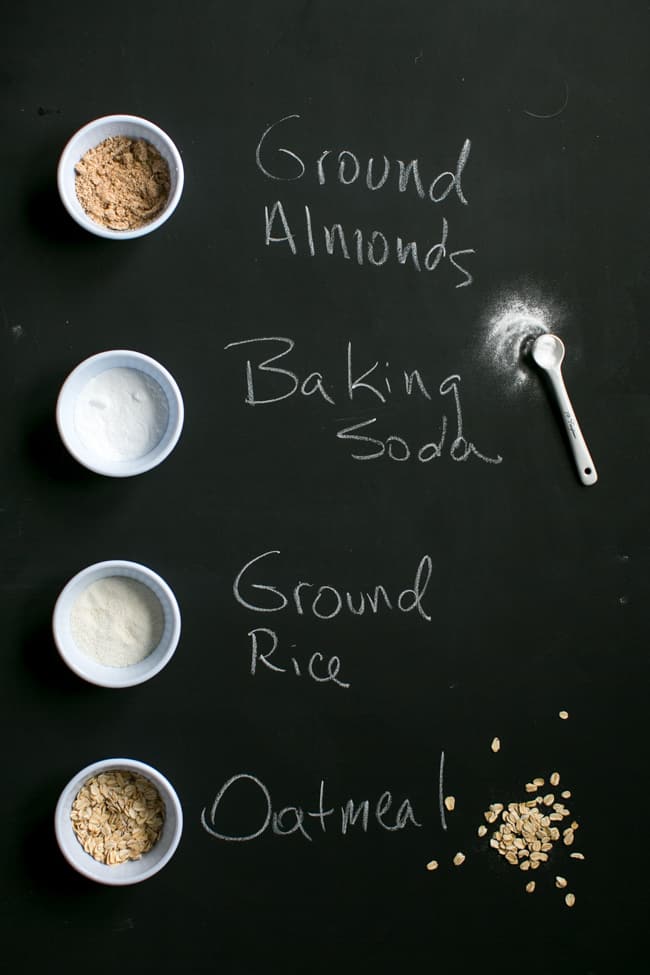 Ground
Almonds
Baking
Soda
Ground
Rice
Oatmeal